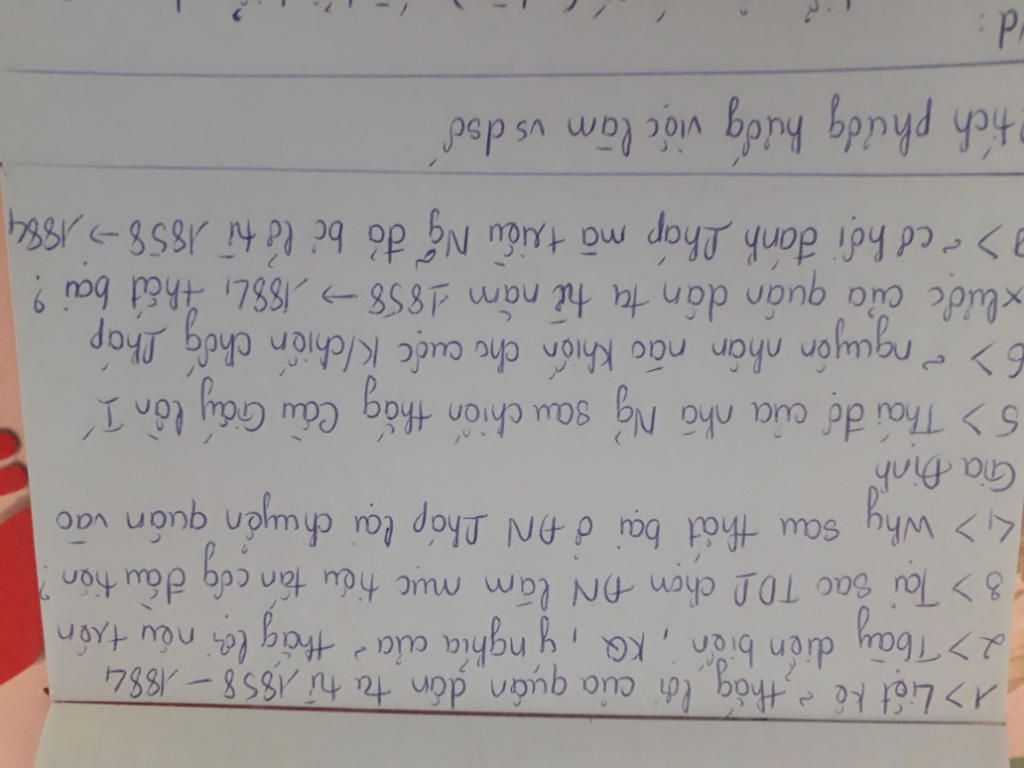 1> Liệt kê ~ thắg lợi của quân dân ta từ 1858 - 1884
2> Tbày diễn biến, KQ, ý nghĩa của ~ thắg lợi nêu trên
3> Tại sao TDP chọn ĐN làm mục tiêu tấn côg đầu tiên?
4> Why sau thất bại ở ĐN Pháp lại chuyển quân vào
Gia Định
5> Thái độ của nhà Ng~ sau chiến thắg Cầu Giấy lần I
6> ~ nguyên nhân nào khiến cho cuộc K/chiến chốg Pháp
xlược của quân dân ta từ năm 1858 → 1884 thất bại?
7> ~ cơ hội đánh Pháp mà triều Ng~ đã bỏ lỡ từ 1858 → 1884
tích phươg hướg việc làm vs dsố